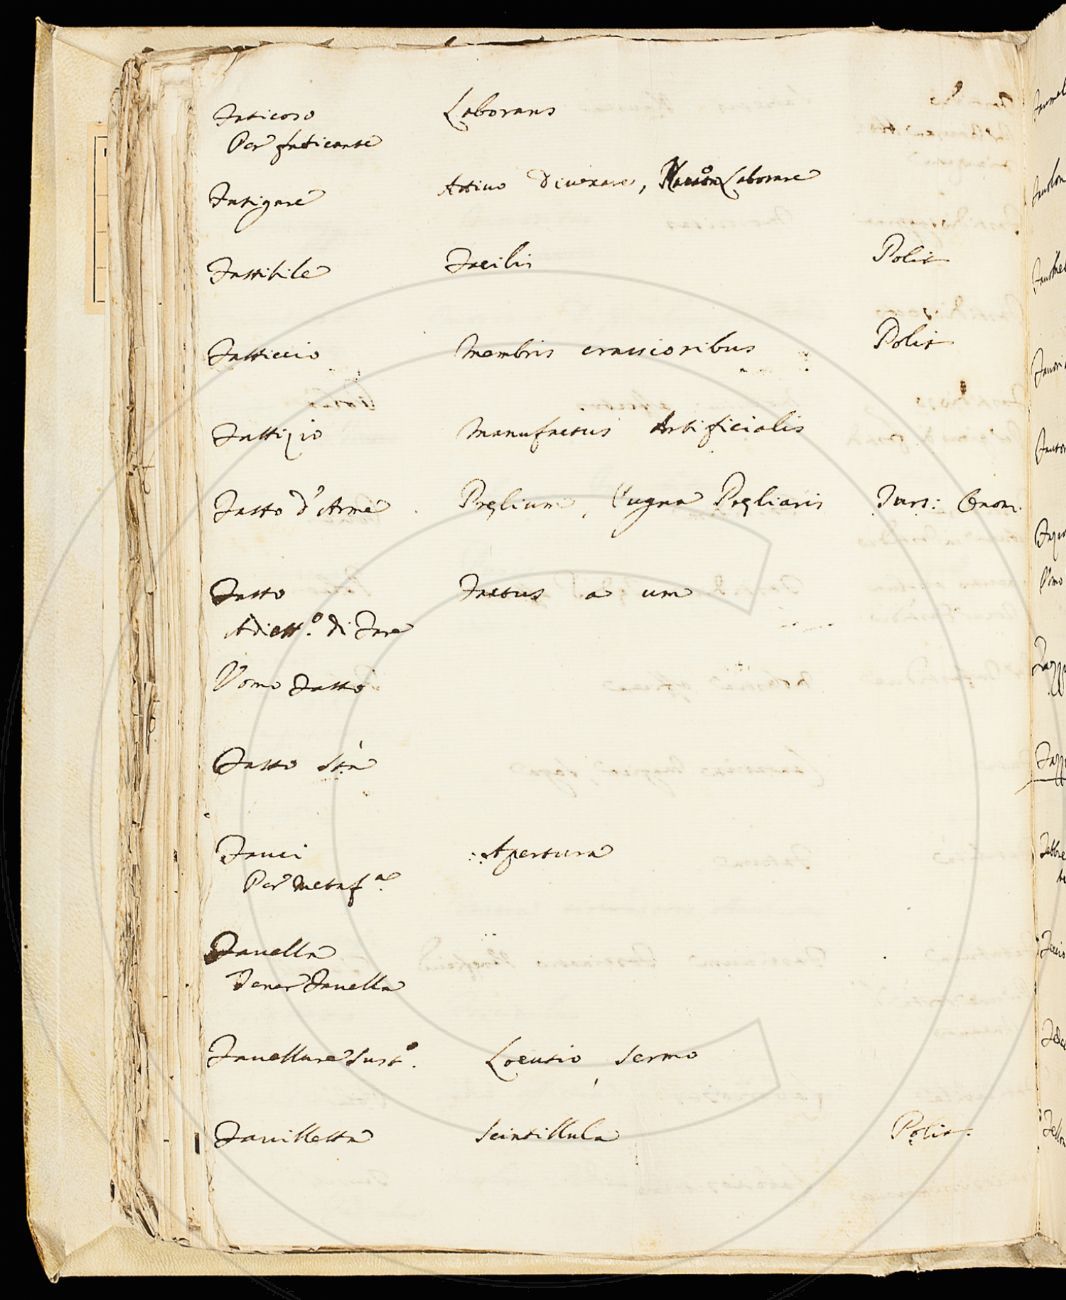 Faticoso Laborans
Per faticante
Fatigare Attivo Divexare, Laborare
Fattibile Facilis Polit
Fatticcio Membris crassioribus Polit
Fattizio Manufactus Artificialis
Fatto d'Arme Pręlium, Pugna Pręliaris Turs: Onom.
Fatto Factus a um
Adiett.º di Fare
Vomo Fatto
Fatto Stà
Fauci Apertura
Per metaf.ª
Fauella
Tener Fauella
Fauellare Sust.º Locutio, Sermo
Fauilletta Scintillula Polit.